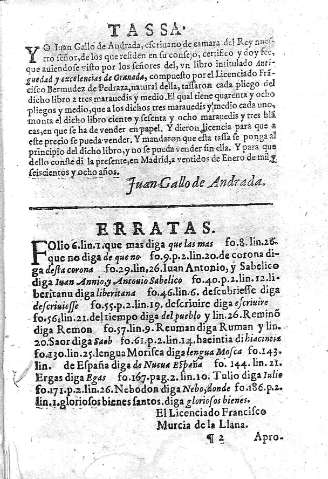 TASSA.
YO Iuan Gallo de Andrada, escriuano de camara del Rey nues-
tro señor, de los que residen en su consejo, certifico y doy fee,
que auiendose visto por los señores del, vn libro intitulado Anti-
guedad y excelencias de Granada, compuesto por el Licenciado Frá-
cisco Bermudez de Pedraza, natural della, tassaron cada pliego del
dicho libro a tres marauedis y medio. El qual tiene quarenta y ocho
pliegos y medio, que a los dichos tres marauedis y medio cada vno,
monta el dicho libro ciento y sesenta y ocho marauedis y tres blá
cas, en que se ha de vender en papel. Y dieron licencia para que a
este precio se pueda vender. Y mandaron que esta tassa se ponga al
principio del dicho libro, y no se pueda vender sin ella. Y para que
dello conste di la presente, en Madrid, a ventidos de Enero de mil y
seiscientos y ocho años.
Juan Gallo de Andrada.
ERRATAS.
Folio 6. lin. 1. que mas diga que las mas fo. 8. lin. 26.
que no diga de que no fo. 9. p. 2. lin. 20. de corona di-
ga desta corona fo. 29. lin. 26. Iuan Antonio, y Sabelico
diga Iuan Annio, y Antonio Sabelico fo. 40. p. 2. lin. 12. li-
beritanu diga liberitana fo. 46. lin. 6. descubriesse diga
descriuiesse fo. 55. p. 2. lin. 19. descriuire diga escriuire
fo. 56. lin. 21. del tiempo diga del pueblo y lin. 26. Reminó
diga Remon fo. 57. lin. 9. Reuman diga Ruman y lin.
20. Saor diga Saab fo. 61. p. 2. lin. 14. hacintia di hiacintia
fo. 130. lin. 25. lengua Morisca diga lengua Mosca fo. 143.
lin. de España diga de Nueua España fo. 144. lin. 21.
Ergas diga Egas fo. 167. pag. 2. lin. 10. Tulio diga Iulio
fo. 171. p. 2. lin. 26. Nebodon diga Nebo, donde fo. 186. p. 2.
lin. 1. gloriosos bienes santos. diga gloriosos bienes.
El Licenciado Francisco
Murcia de la Llana.
¶ 2 Apro-